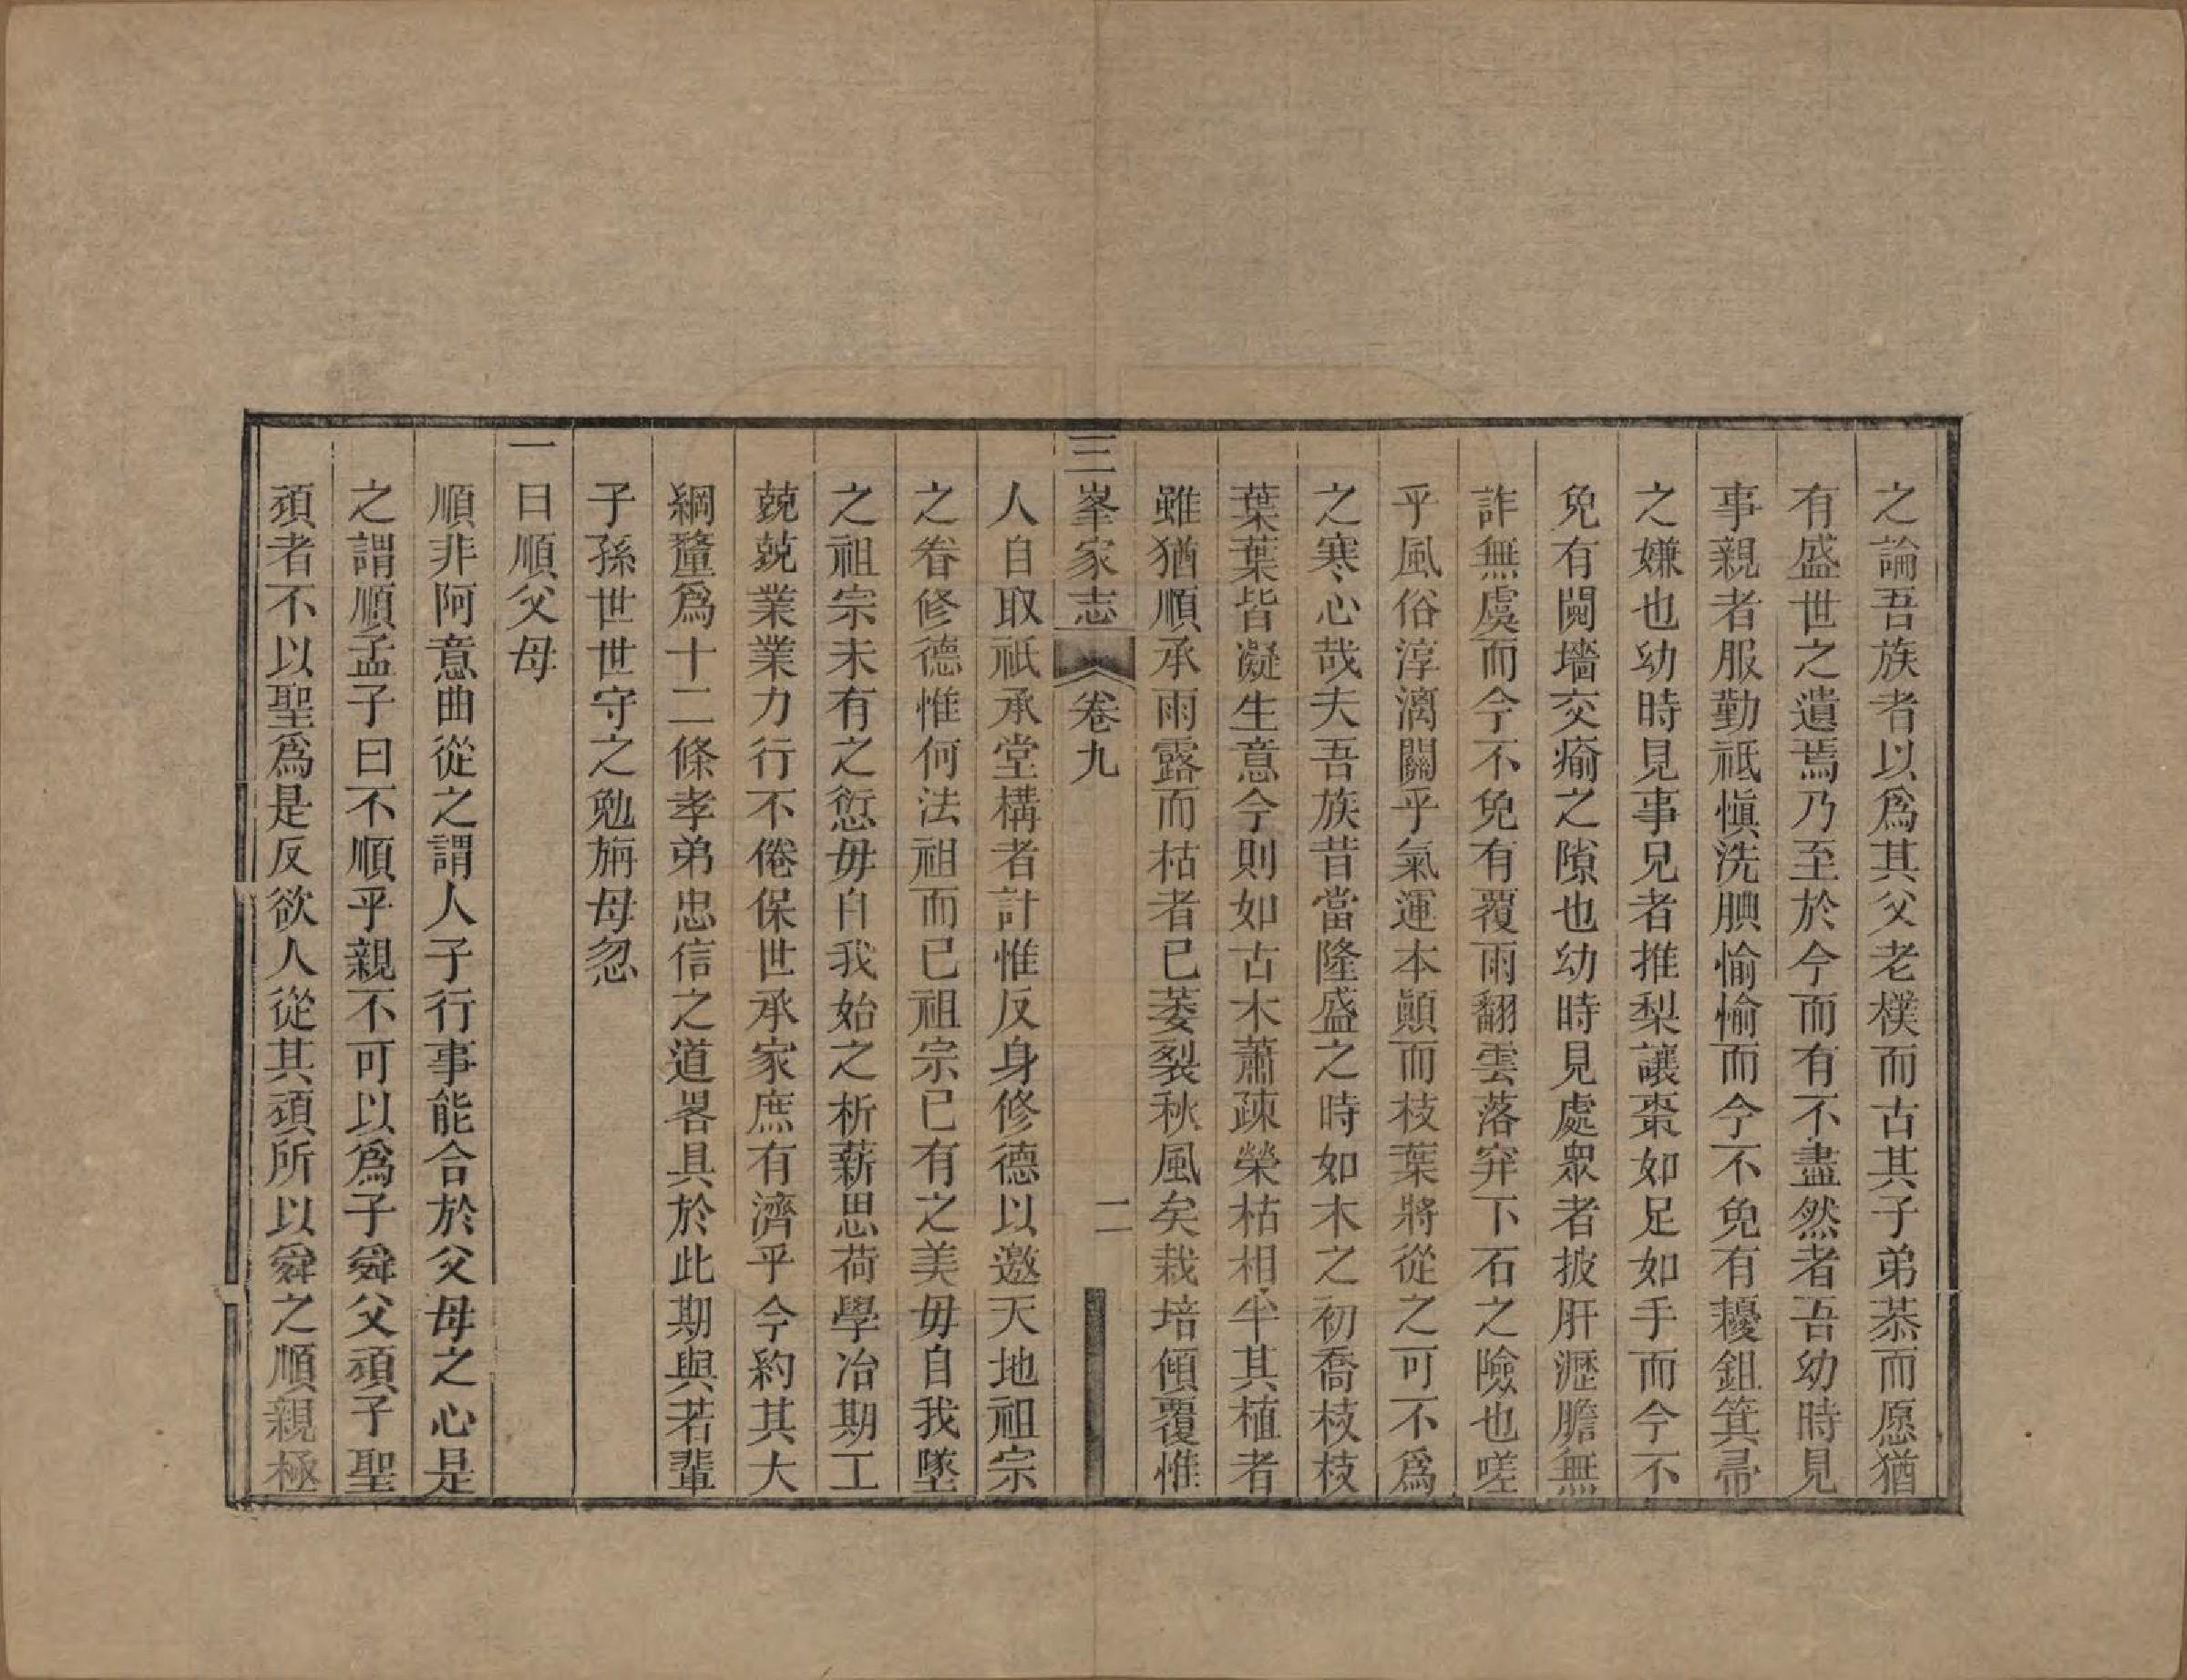 之論吾族者以爲其父老樸而古其子弟恭而愿猶
有盛世之遺焉乃至於今而有不盡然者吾幼時見
事親者服勤祗愼洗腆愉愉而今不免有耰鉏箕帚
之嫌也幼時見事兄者推梨讓棗如足如手而今不
免有鬩墻交瘉之隙也幼時見處眾者披肝瀝膽無
詐無虞而今不免有覆雨翻雲落穽下石之險也嗟
乎風俗淳漓關乎氣運本顚而枝葉將從之可不爲
之寒心哉夫吾族昔當隆盛之時如木之初喬枝枝
葉葉皆凝生意今則如古木蕭疎榮枯相半其植者
雖猶順承雨露而枯者已萎裂秋風矣栽培傾覆惟
三峯家志 卷九 二
人自取祇承堂構者計惟反身修德以邀天地祖宗
之眷修德惟何法祖而已祖宗已有之美毋自我墜
之祖宗未有之愆毋自我始之析薪思荷學冶期工
兢兢業業力行不倦保世承家庶有濟乎今約其大
綱釐爲十二條孝弟忠信之道畧具於此期與若輩
子孫世世守之勉旃母忽
一曰順父母
順非阿意曲從之謂人子行事能合於父母之心是
之謂順孟子曰不順乎親不可以爲子舜父頑子聖
頑者不以聖爲是反欲人從其頑所以舜之順親極